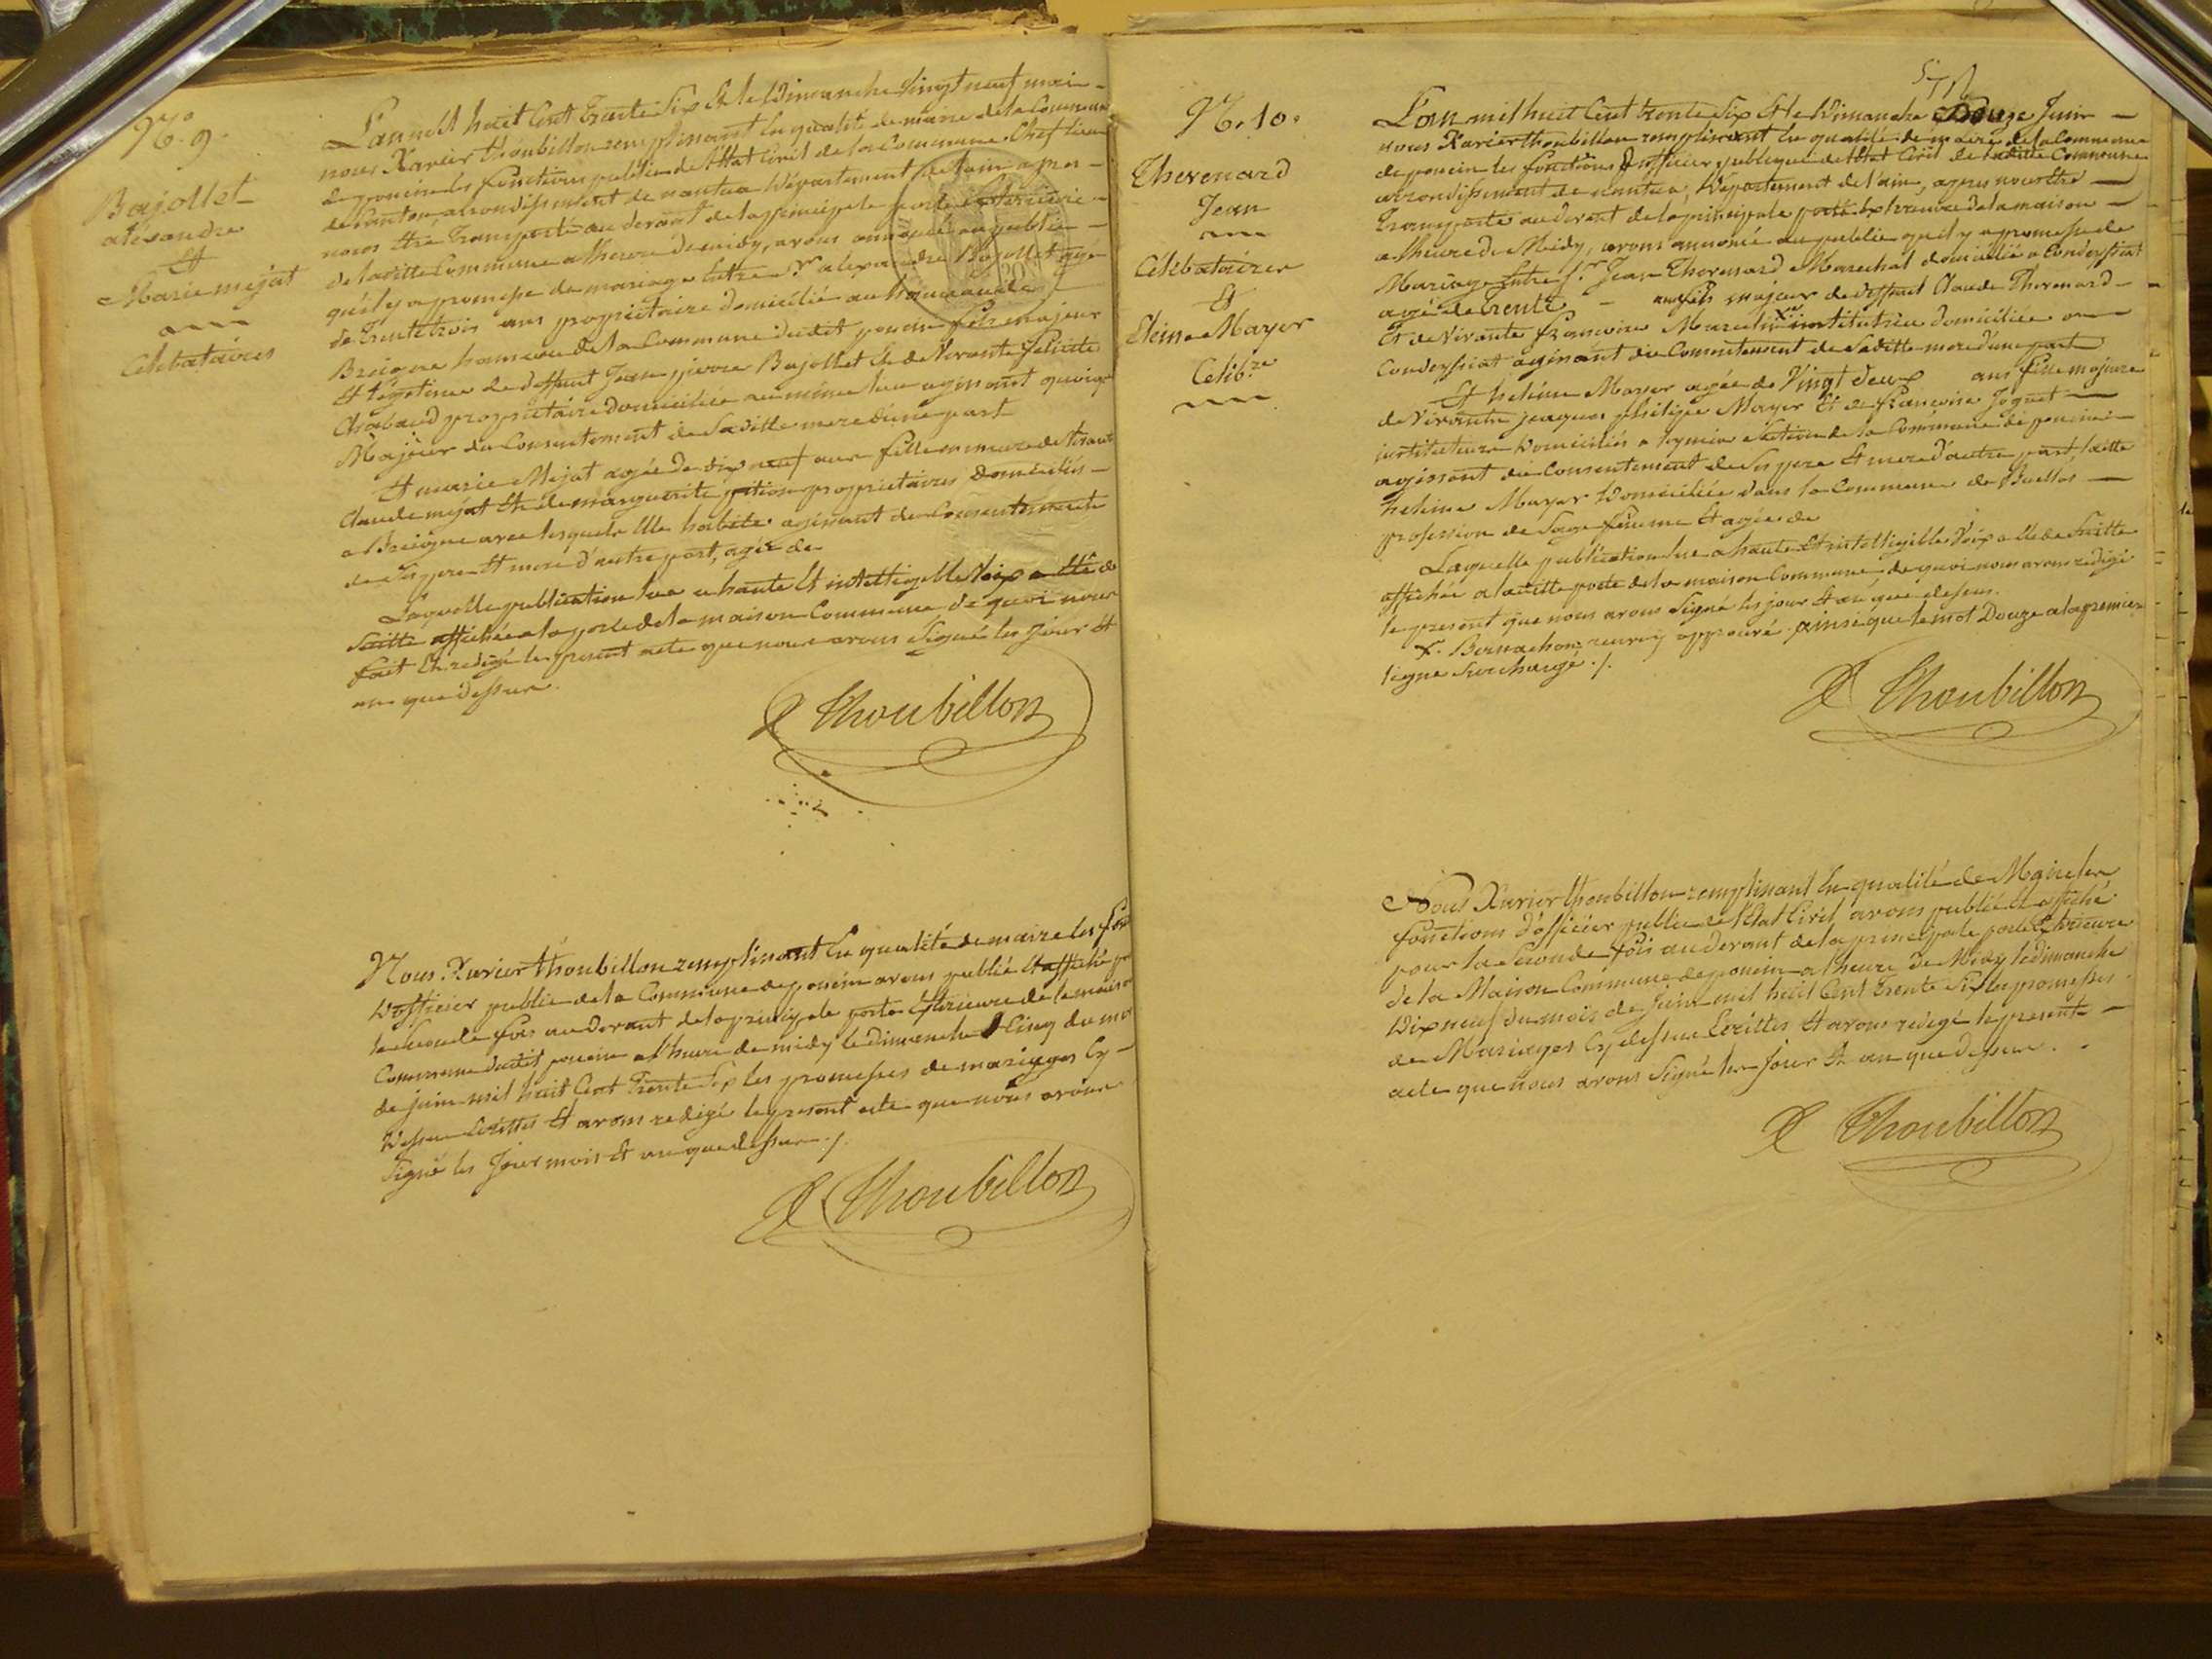 No. 9.
Bajollet
aléxandre
Et
Marie mejat
Celibataires
L'an mil huit Cent Trente Six Et le Dimanche Vingt neuf mai
nous Xavier thoubillon remplissant En qualité de maire de la Commune
de poncin les fonctions public de l'Etat Civil de la Commune Chef lieu
de Canton arrondissement de nantua Département de l'ain apres
nous Etre Transporté au devant de la principale porte Exterieure
de laditte Commune a l'heure de midy, avons annoncé au public
qu'il y a promesse de mariage Entre Sr. aléxandre Bajollet agé
de Trente trois ans proprietaire domicilié au hameau de
Breigne hameau de la Commune dudit poncin fils majeur
Et legitime de deffunt Jean pierre Bajollet Et de Vivante felicité
Chabaud proprietaire domiciliée au même lieu agissant quoique
Majeur du Consentement de Saditte mere d'une part
Et marie Mejat agée de dix neuf ans fille mineure de Vivant
Claude mejat Et de marguerite pition proprietaires Domiciliés
a Breigne avec lesquels Elle habite agissant du Consentement
de Ses pere Et mere d'autre part, agée de
Laquelle publication lue a haute Et intelligible Voix a Eté de
Suitte affichée a la porte de la maison Commune de quoi nous
fait Et redigé le present acte que nous avons Signé les jour Et
an que dessus.
X Thoubillon
Nous Xavier thoubillon remplissant En qualité de maire les fon
D'officier public de la Commune de poncin avons publié Et affiché po
la Seconde fois au devant de la principale porte Exterieure de la maison
Commune dudit poncin a l'heure de midy le dimanche Cinq du mois
de juin mil huit Cent Trente Six les promesses de mariages Cy
Dessus Ecrittes Et avons redigé le present acte que nous avons
Signé les Jour mois Et an que dessus ./.
X Thoubillon
No. 10.
Thevenard
Jean
Celibataires
Et
Eleine Mayer
Celib.re
L'an mil huit Cent trente Six Et le Dimanche Douze Juin
nous Xavier thoubillon remplissant En qualité de maire de la Commune
de poncin les fonctions d'officier publique de l'Etat Civil de laditte Commune
arrondissement de Nantua, Département de l'ain, apres nous Etre
Transporté au devant de la principale porte Exterieure de la maison
a l'heure de Midy, avons annoncé au public qu'il y a promesse de
Mariage Entre Sr. Jean Thevenard Marechal domicilié a Condeyssiat
agé de Trente ans fils majeur de deffunt Claude Thevenard
Et de Vivante francoise institutrice domiciliée a
Condeyssiat agissant du Consentement de Saditte mere d'une part
Et heleine Mayer agée de Vingt deux ans fille majeure
de Vivants jacques philippe Mayer Et de francoise Joquet
instituteurs Domiciliés a Section de la Commune de poncin
agissant du Consentement de Ses pere Et mere d'autre part, laditte
heleine Mayer Domiciliée dans la Commune de Buellas
profession de Sage femme Et agée de
Laquelle publication lue a haute Et intelligible Voix a Eté de Suitte
affichée a laditte porte de la maison Commune, de quoi nous avons redigé
le present que nous avons Signé les jour Et an que dessus.
X. Bernachon renvoy approuvé. ainsi que le mot Douze a la premiere
ligne Surchargé ./.
X Thoubillon
Nous Xavier thoubillon remplissant En qualité de Maire les
fonctions d'officier public de l'Etat Civil avons publié Et affiché
pour la Seconde fois au devant de la principale porte Exterieure
de la Maison Commune de poncin a l'heure de Midy le dimanche
Dix neuf du mois de Juin mil huit Cent Trente Six les promesses
de Mariages Cy dessus Ecrittes Et avons redigé le present
acte que nous avons Signé les Jour Et an que dessus.
X Thoubillon